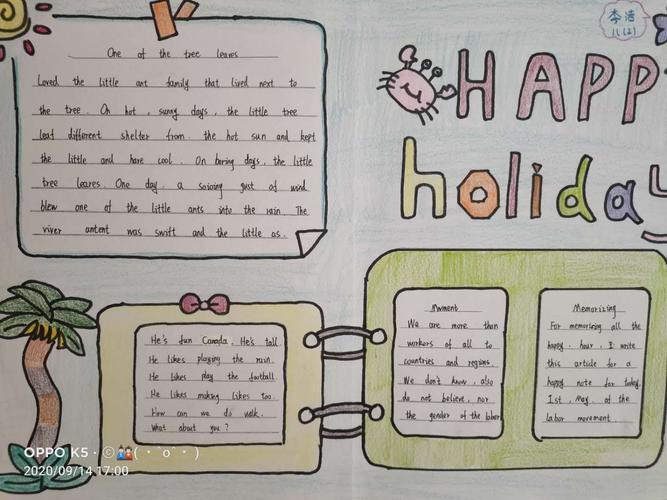 李洁
八(2)
HAPPY
holiday
One of the tree leaves
Loved the little ant family that lived next to
the tree. On hot, sunny days, the little tree
leaf different shelter from the hot sun and kept
the little and have cool. On boring days, the little
tree leares. One day, a soicing gust of wind
blew one of the little ants into the rain. The
river antent was swift and the little as.
He's fun Canada. He's tall
He likes playing the rain.
He likes play the football.
He likes making likes too.
How can we do walk.
What about you?
Mwment
We are more than
workers of all to
countries and regions.
We don't know, also
do not believe, nor
the gender of the labor
Memorizing
For memorizing all the
happy, hour, I write
this article for a
happy note for today.
1st, May, of the
labor movement
OPPO K5
2020/09/14 17:00